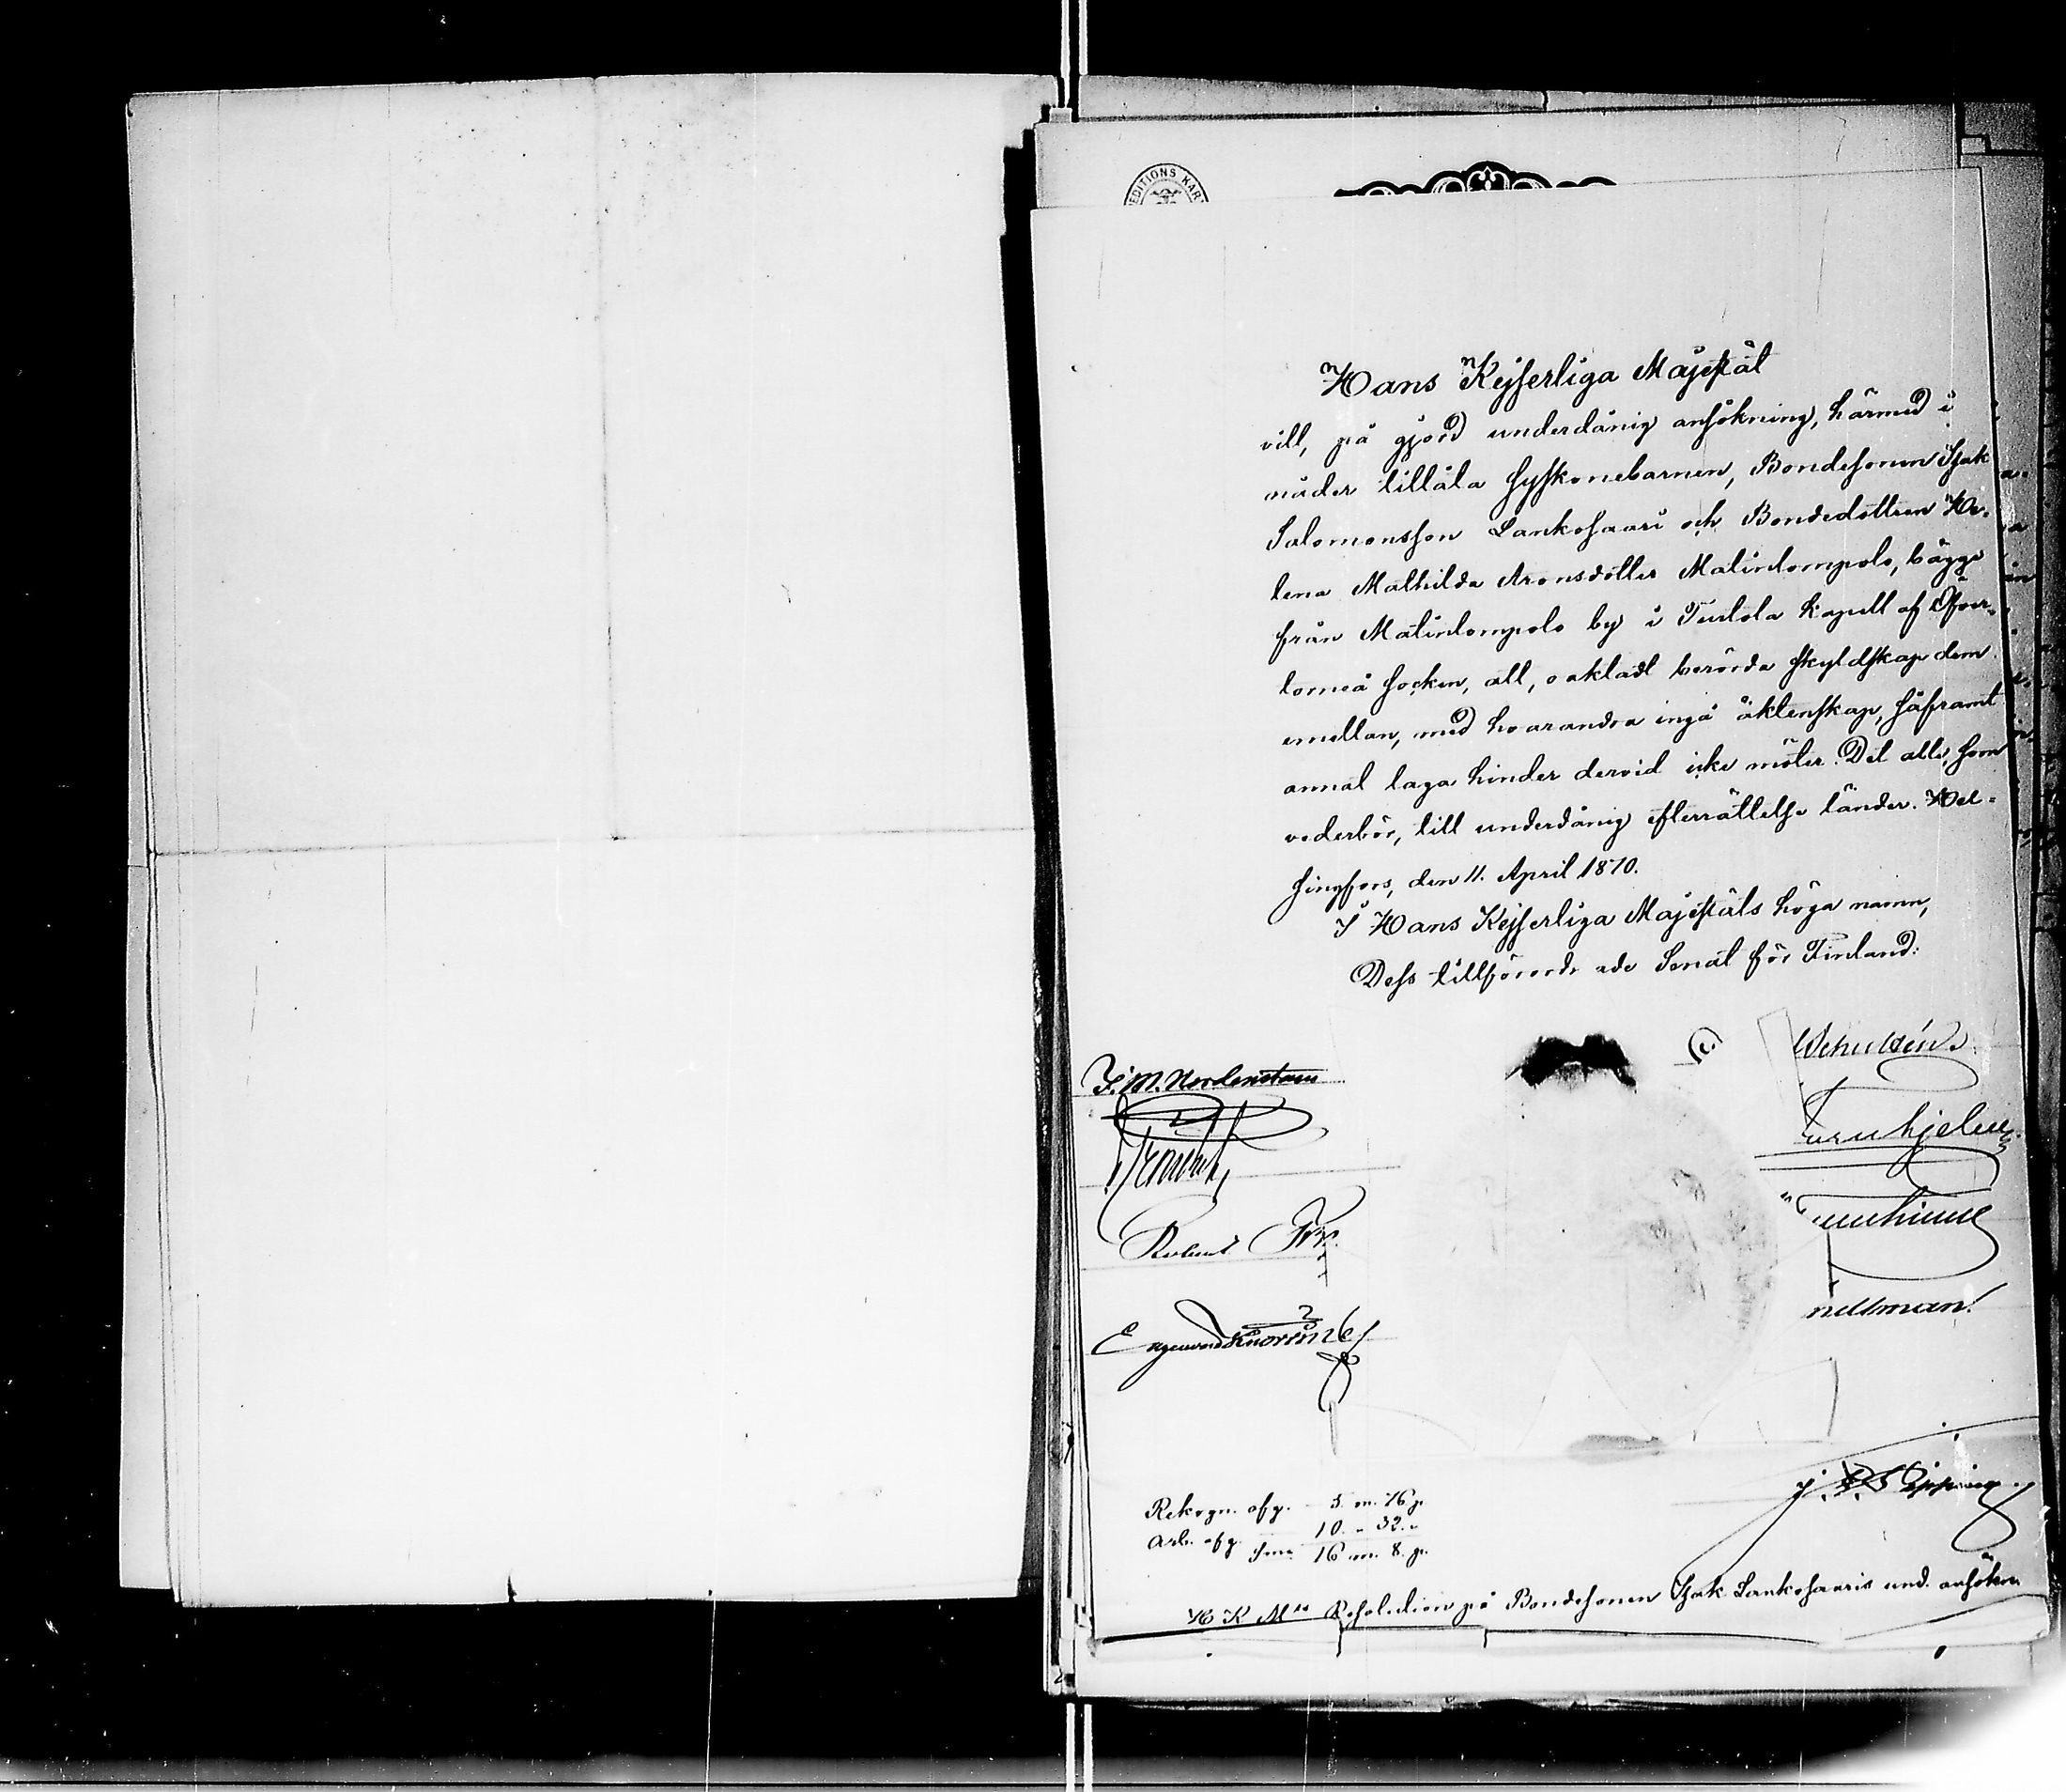 EDITIONS KAR
Hans Kejserliga Majestät
vill, på gjord underdånig ansökning, härmed i
nåder tillåta syskonebarnen, Bondesonen Isak
Salomonsson Lankosaari och Bondedottren He-
lena Mathilda Aronsdotter Matinlompolo, bägge
från Matinlompolo by i Turtola kapell af Öfver-
torneå socken, att, oaktadt berörda skyldskap dem
emellan, med hvarandra ingå äktenskap, såframt
annat laga hinder dervid icke möter. Det alle, som
vederbör, till underdånig efterrättelse länder. Hel-
singfors, den 11. April 1870.
I Hans Kejserliga Majestäts höga namn,
Dess tillförordnade Senat för Finland:
J. M. Nordenstam
Robert
nellman.
Rekogn. afg. 5 m. 76 p.
Arb. afg. 10 " 32 "
S:ma 16 m. 8 p.
H K M:ts Resolution på Bondesonen Isak Lankosaaris und. ansökn